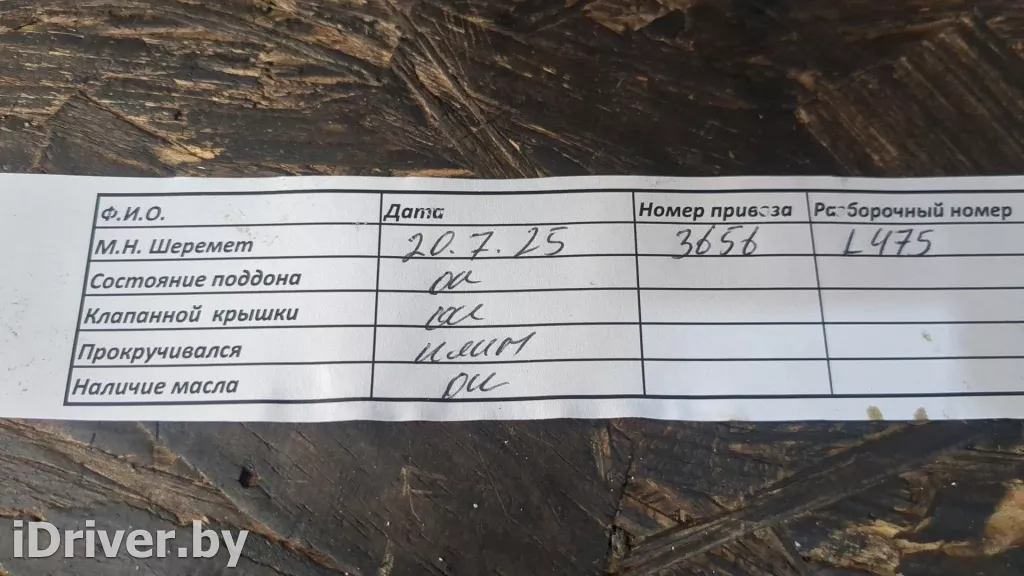 Ф.И.О. Дата Номер привоза Разборочный номер
М.Н. Шеремет 20.7.25 3656 L475
Состояние поддона ок
Клапанной крышки ок
Прокручивался
Наличие масла ок
iDriver.by